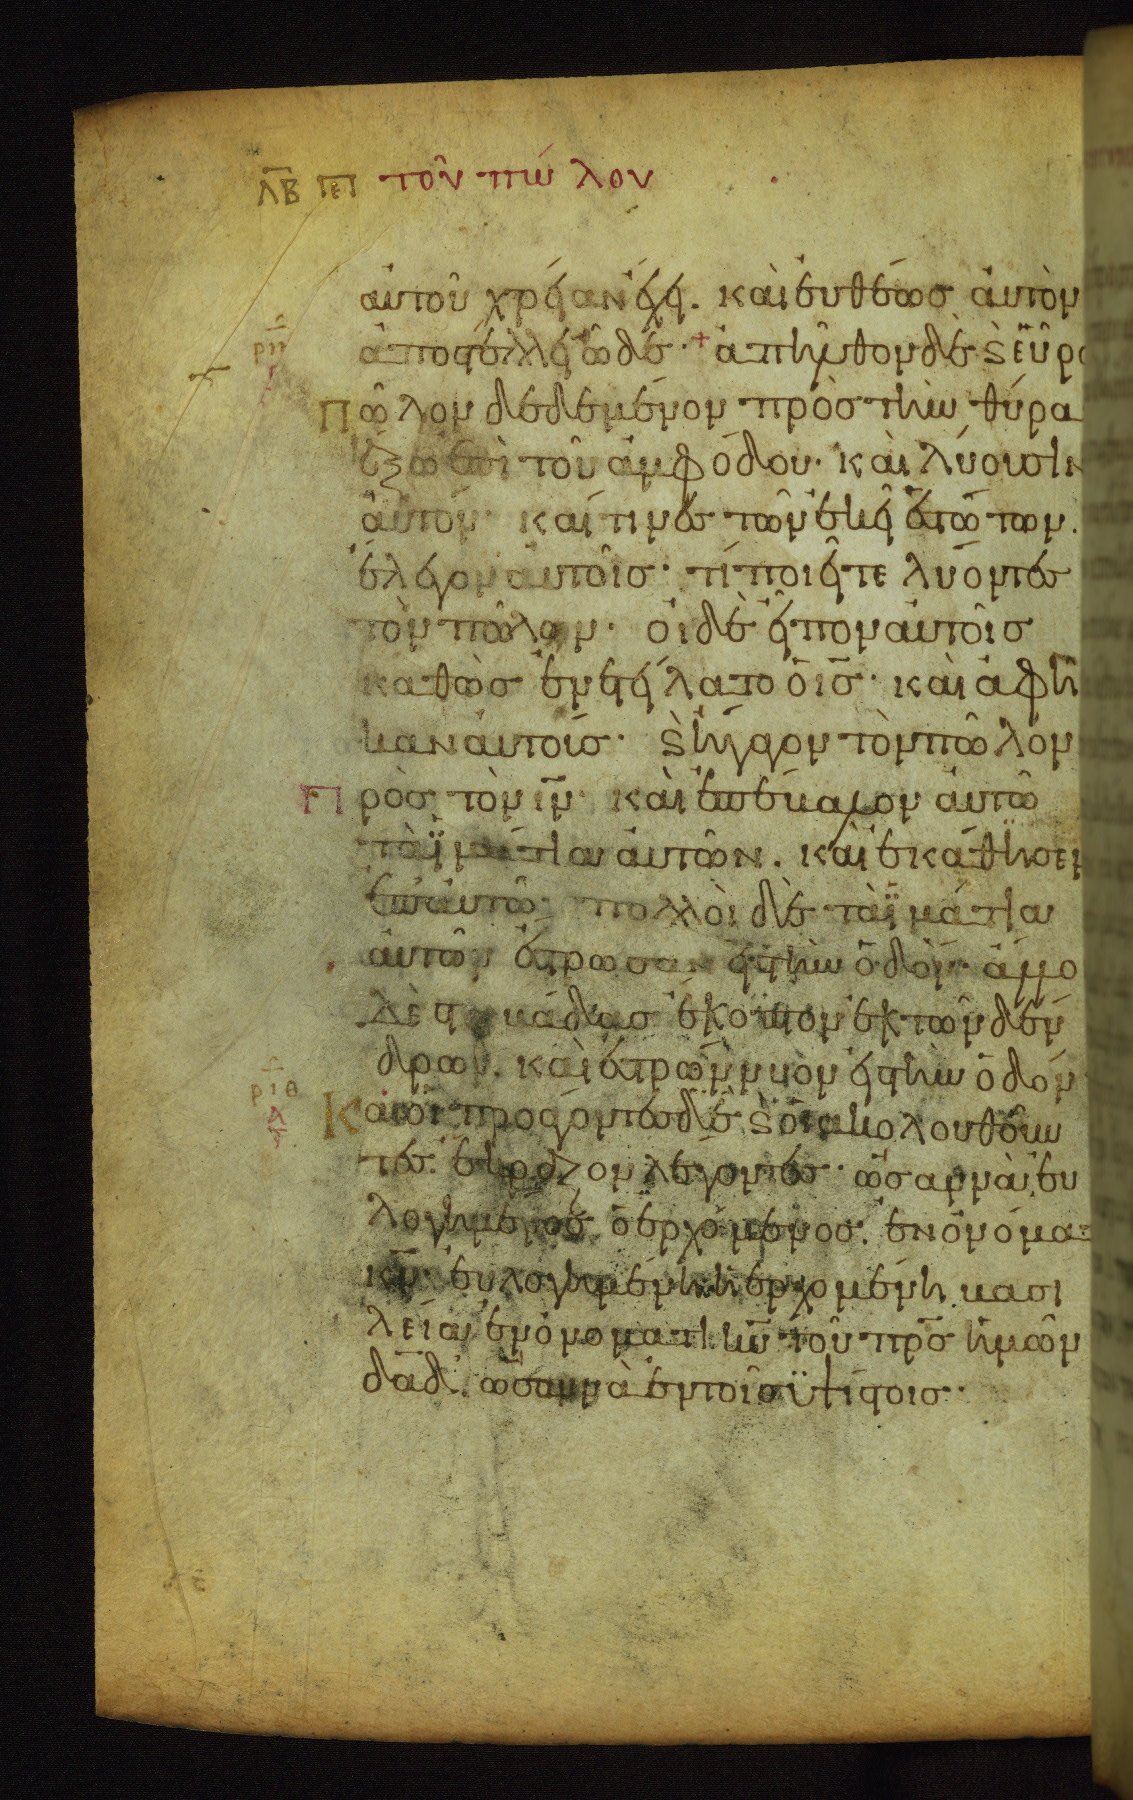 ΛΒ ΠΕΡ τοῦ πώλου
αὐτοῦ χρείαν ἔχει. καὶ εὐθέως αὐτὸν
ριη ἀποστέλλει ὧδε· + ἀπῆλθον δὲ ϗ εὗρο
Πῶλον δεδεμένον πρὸς τὴν θύρα
ἔξω ἐπὶ τοῦ ἀμφόδου· καὶ λύουσιν
αὐτόν· καί τινες τῶν ἐκεῖ ἑστώτων.
ἔλεγον αὐτοῖς· τί ποιεῖτε λύοντες
τὸν πῶλον· οἱ δὲ εἶπον αὐτοῖς
καθὼς ἐνετείλατο ὁ ισ̅· καὶ ἀφῆ
καν αὐτοίς· ϗ ἤγαγον τὸν πῶλον
Πρὸς τὸν ιν̅· καὶ ἐπέβαλον αὐτῶ
τὰ ϊμάτια αὐτῶν. καὶ ἐκάθησεν
ἐπ' αὐτῶ· πολλοὶ δὲ τὰ ϊμάτια
αὐτῶν ἔστρωσαν εἰς τὴν ὁδόν· ἄλλοι
δὲ στιβάδας ἔκοπτον ἐκ τῶν δέν
δρων. καὶ ἐστρώννυον εἰς τὴν ὁδόν
ριθ Καὶ οἱ προάγοντες δὲ ϗ οἱ ἀκολουθοῦν
τες· ἔκραζον λέγοντες· ὡσαννὰ εὐ
λογημένος ὁ ἐρχόμενος. ἐν ὀνόματι
κυ̅· εὐλογημένη ἡ ἐρχομένη βασι
λεία ἐν ὀνόματι κυ̅ τοῦ πρσ̅ ἡμῶν
δαδ̅. ὡσαννὰ ἐν τοῖς ϋψίστοις·